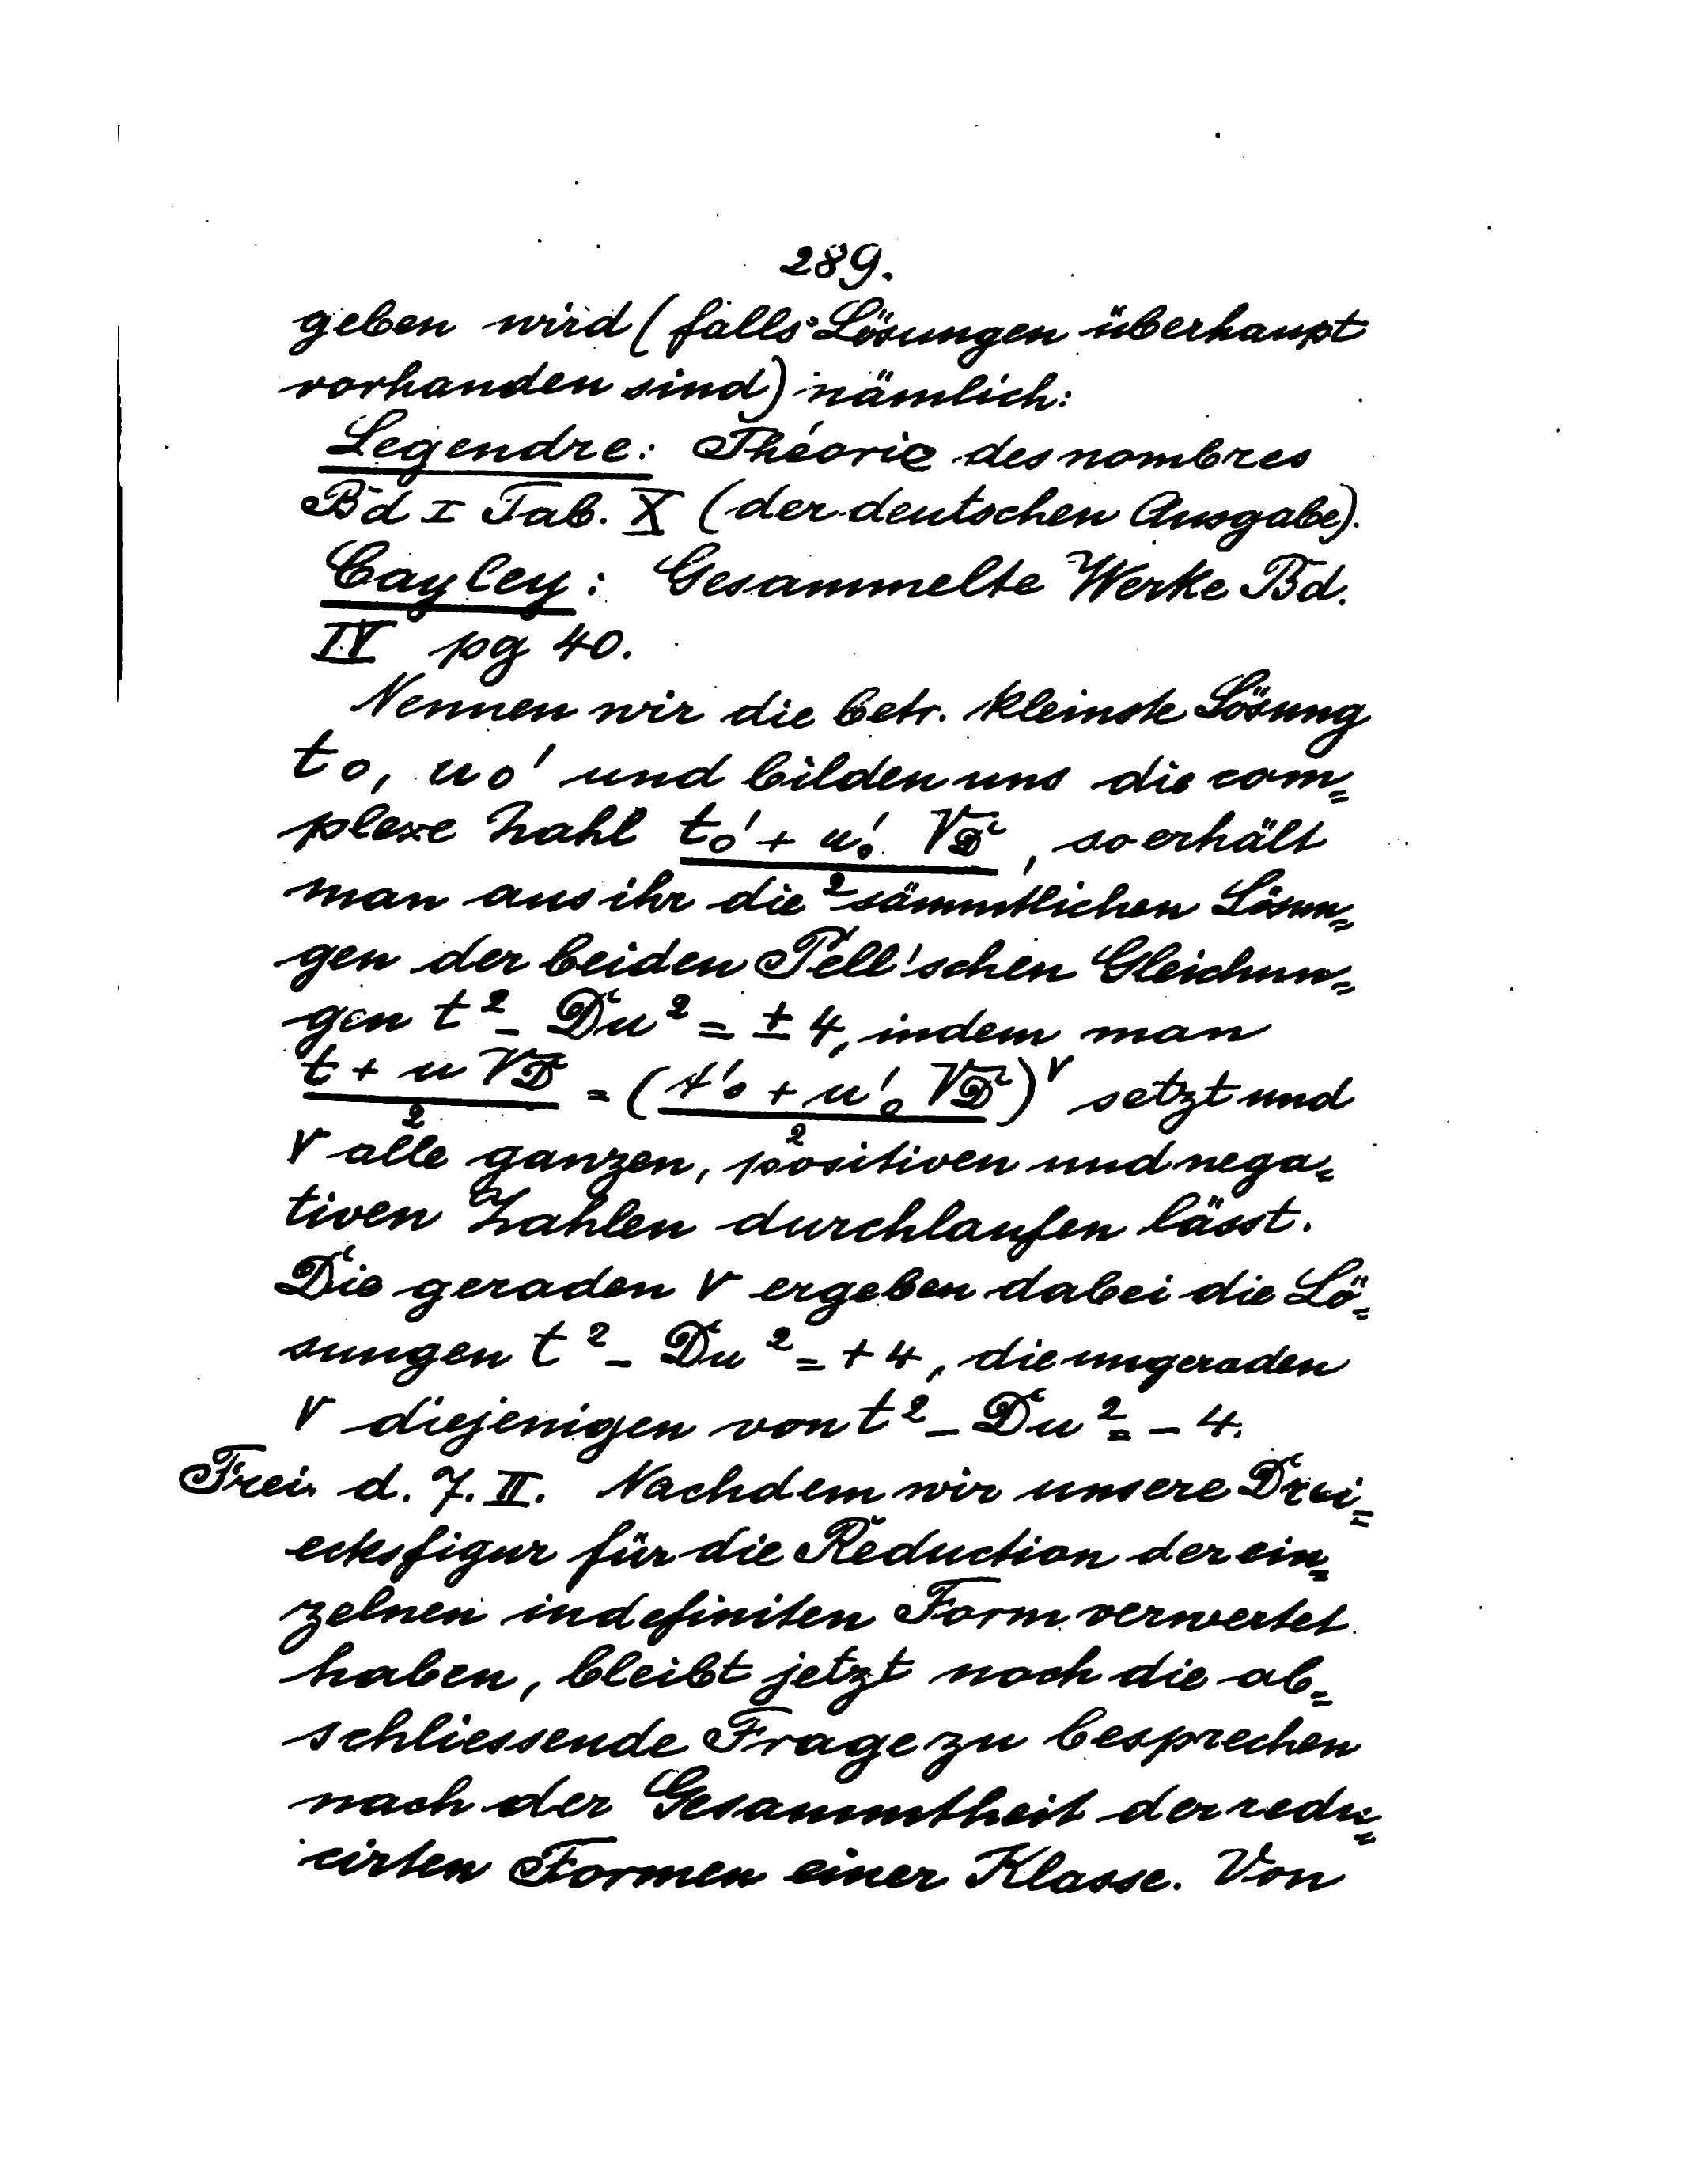 289.
geben wird (falls Lösungen überhaupt
vorhanden sind) nämlich:
Legendre: Théorie des nombres
Bd I Tab. X (der deutschen Ausgabe).
Cayley: Gesammelte Werke Bd.
IV pg 40.
Nennen wir die betr. kleinste Lösung
t0, u0' und bilden uns die com=
plexe Zahl (t0' + u0' √D)/2, so erhält
man aus ihr die sämmtlichen Lösun=
gen der beiden Pell'schen Gleichun=
gen t² - Du² = ± 4, indem man
(t + u √D)/2 = ((t'0 + u'0 √D)/2)^ν setzt und
ν alle ganzen, positiven und nega=
tiven Zahlen durchlaufen lässt.
Die geraden ν ergeben dabei die Lö=
sungen t² - Du² = + 4, die ungeraden
ν diejenigen von t² - Du² = - 4.
Frei. d. 7. II. Nachdem wir unsere Drei=
ecksfigur für die Reduction der ein=
zelnen indefiniten Form verwertet
haben, bleibt jetzt noch die ab=
schliessende Frage zu besprechen
nach der Gesammtheit der redu=
cirten Formen einer Klasse. Von